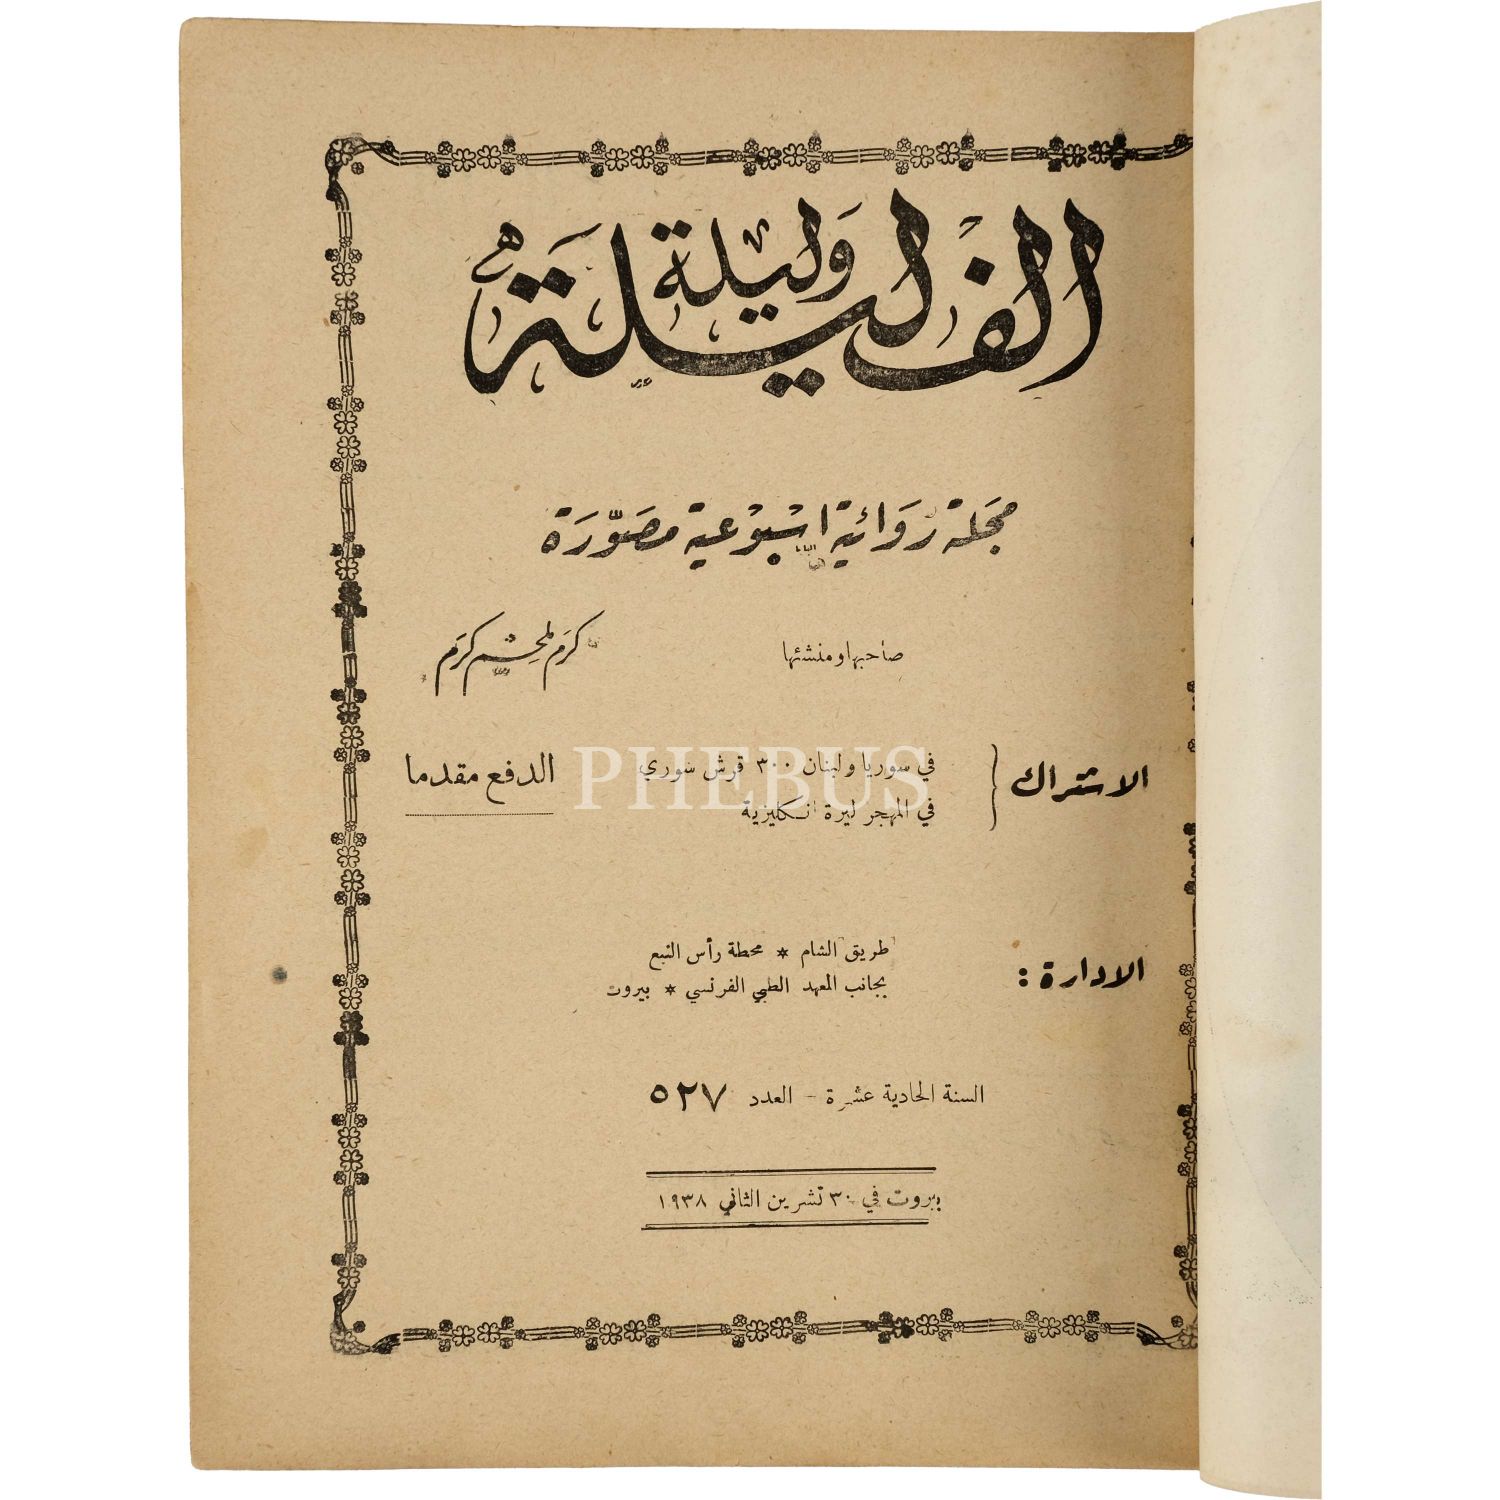 الف ليلة وليلة
مجلة روائية اسبوعية مصوّرة
صاحبها ومنشئها كرم ملحم كرم
الاشتراك
في سوريا ولبنان ٣٠٠ قرش سوري
في المهجر ليرة انكليزية
الدفع مقدما
PHEBUS
الادارة:
طريق الشام * محطة رأس النبع
بجانب المعهد الطبي الفرنسي * بيروت
السنة الحادية عشرة - العدد ٥٢٧
بيروت في ٣٠ تشرين الثاني ١٩٣٨